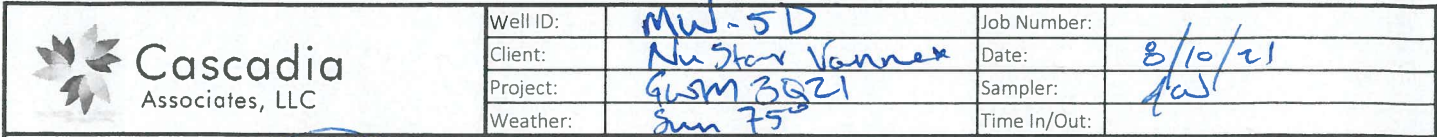 Cascadia
Associates, LLC
Well ID: MW-5D Job Number:
Client: NuStar Vannex Date: 8/10/21
Project: GWM 3Q21 Sampler:
Weather: Sun 75° Time In/Out: